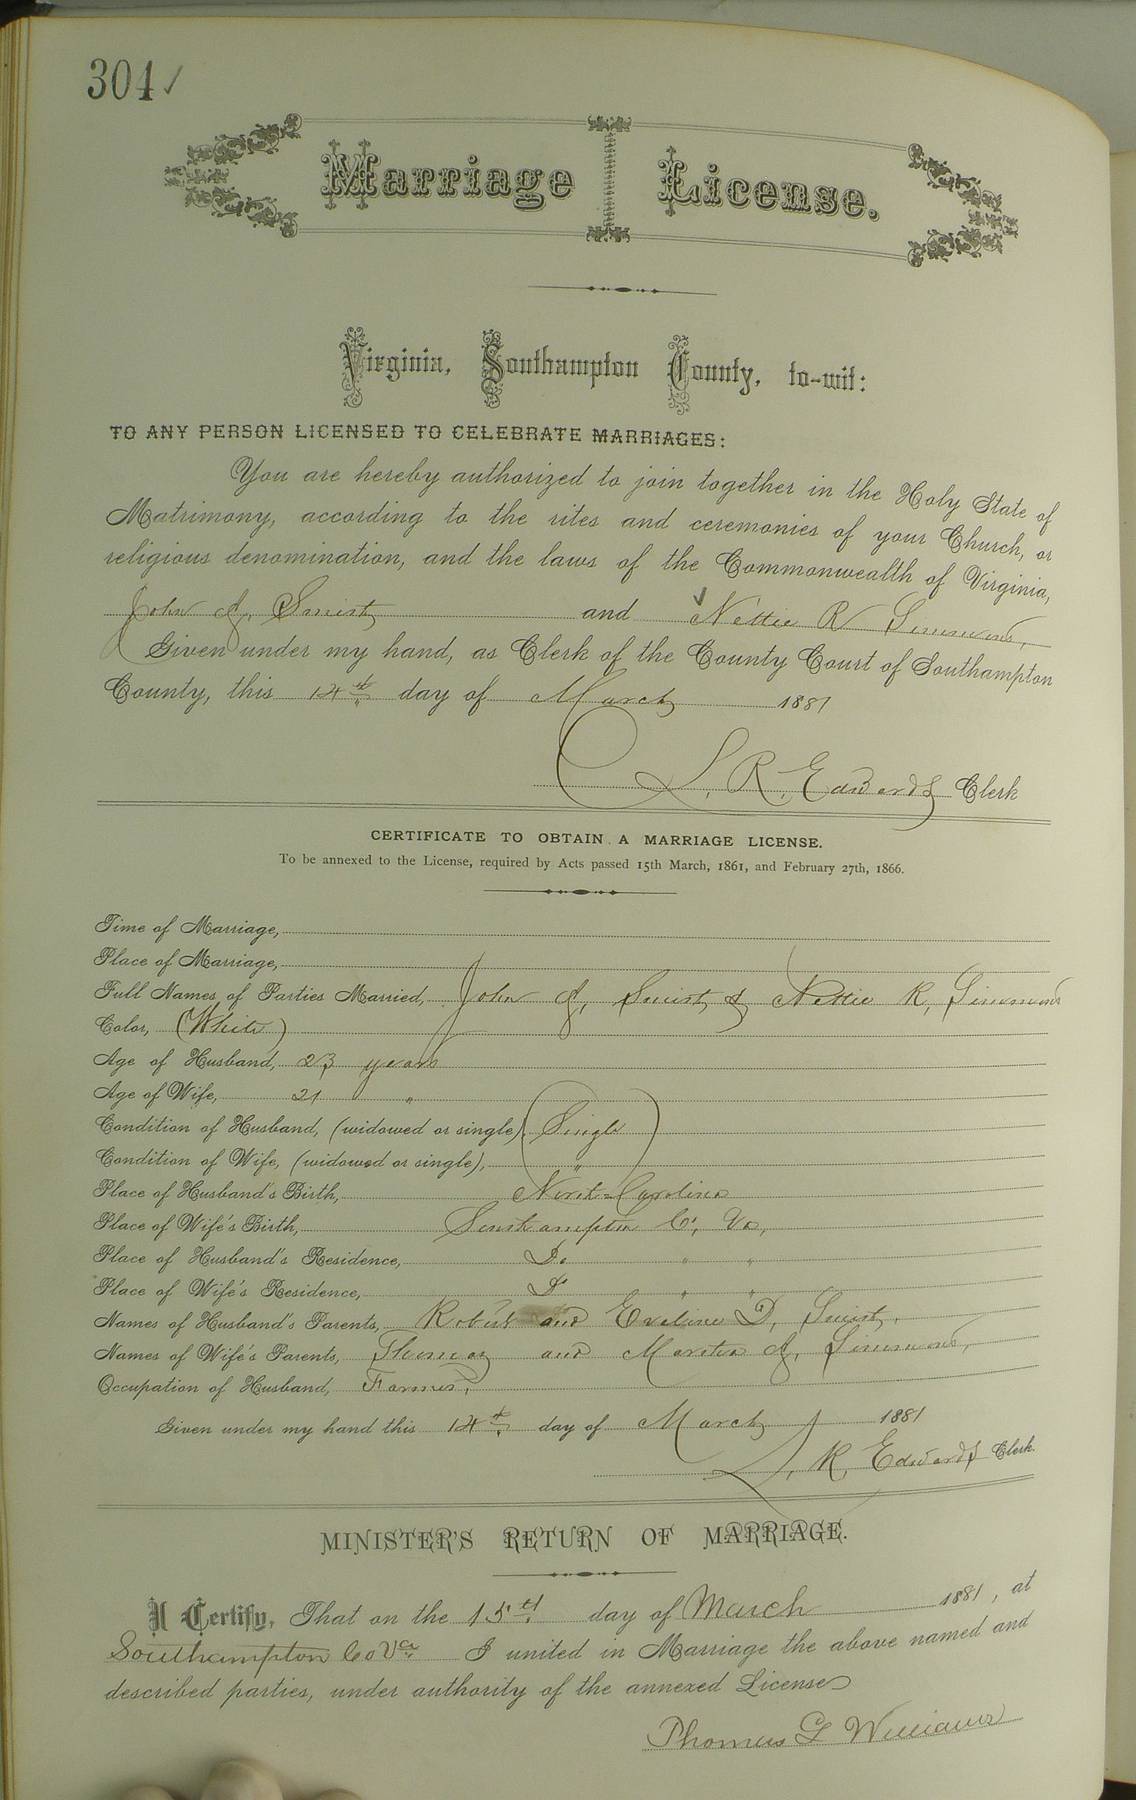 304 ✓
Marriage License.
Virginia, Southampton County, to-wit:
TO ANY PERSON LICENSED TO CELEBRATE MARRIAGES:
You are hereby authorized to join together in the Holy State of
Matrimony, according to the rites and ceremonies of your Church, or
religious denomination, and the laws of the Commonwealth of Virginia,
John and Nettie R Simmons,
Given under my hand, as Clerk of the County Court of Southampton
County, this 14th day of March 1881
L. R. Edwards Clerk
CERTIFICATE TO OBTAIN A MARRIAGE LICENSE.
To be annexed to the License, required by Acts passed 15th March, 1861, and February 27th, 1866.
Time of Marriage,
Place of Marriage,
Full Names of Parties Married, John & Nettie R. Simmons
Color, (White)
Age of Husband, 23 years
Age of Wife, 21 "
Condition of Husband, (widowed or single), Single
Condition of Wife, (widowed or single), "
Place of Husband's Birth, North Carolina
Place of Wife's Birth, Southampton Co, Va,
Place of Husband's Residence, Do " "
Place of Wife's Residence, Do " "
Names of Husband's Parents, Robert and Eveline D,
Names of Wife's Parents, Thomas and Simmons,
Occupation of Husband, Farmer,
Given under my hand this 14th day of March 1881
L. R. Edwards Clerk.
MINISTER'S RETURN OF MARRIAGE.
I Certify, That on the 15th day of March 1881, at
Southampton Co Va I united in Marriage the above named and
described parties, under authority of the annexed License
Thomas G Williams